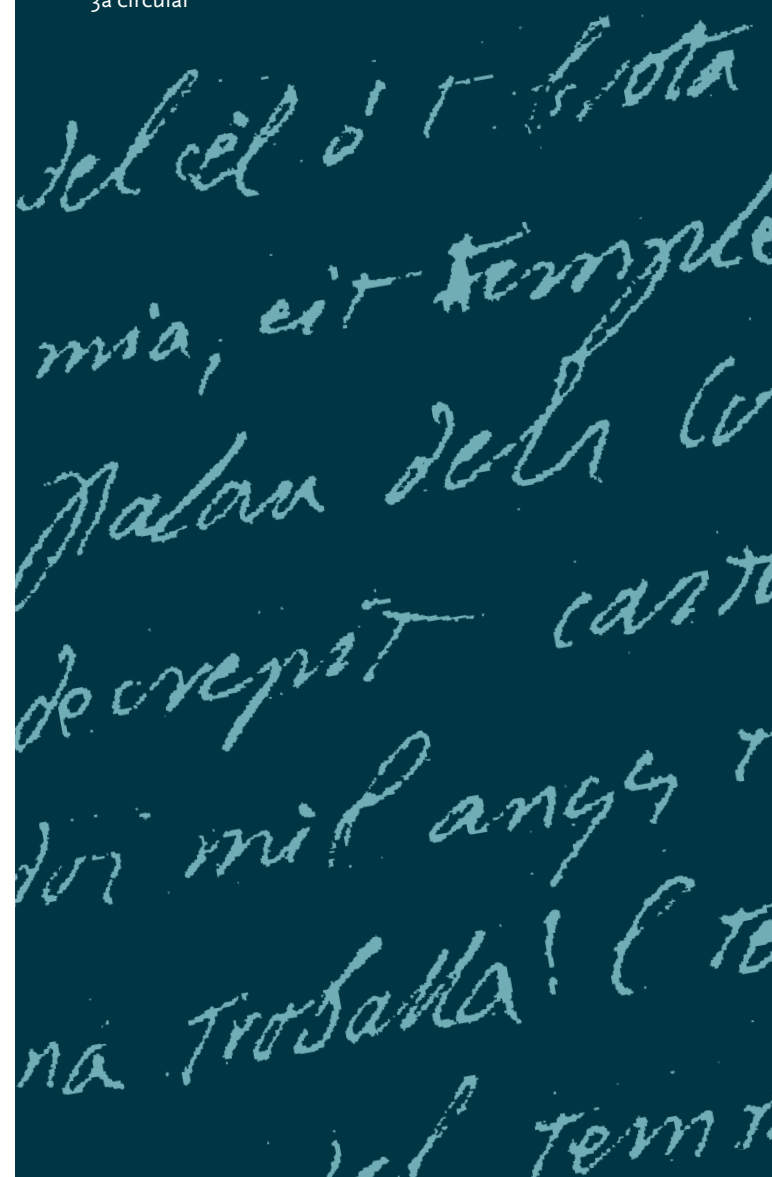 3a circular
del cèl ó t
mia, eix temple
Palau dels Co
decrepit cant
dos mil anys
na troballa! C te
del tem